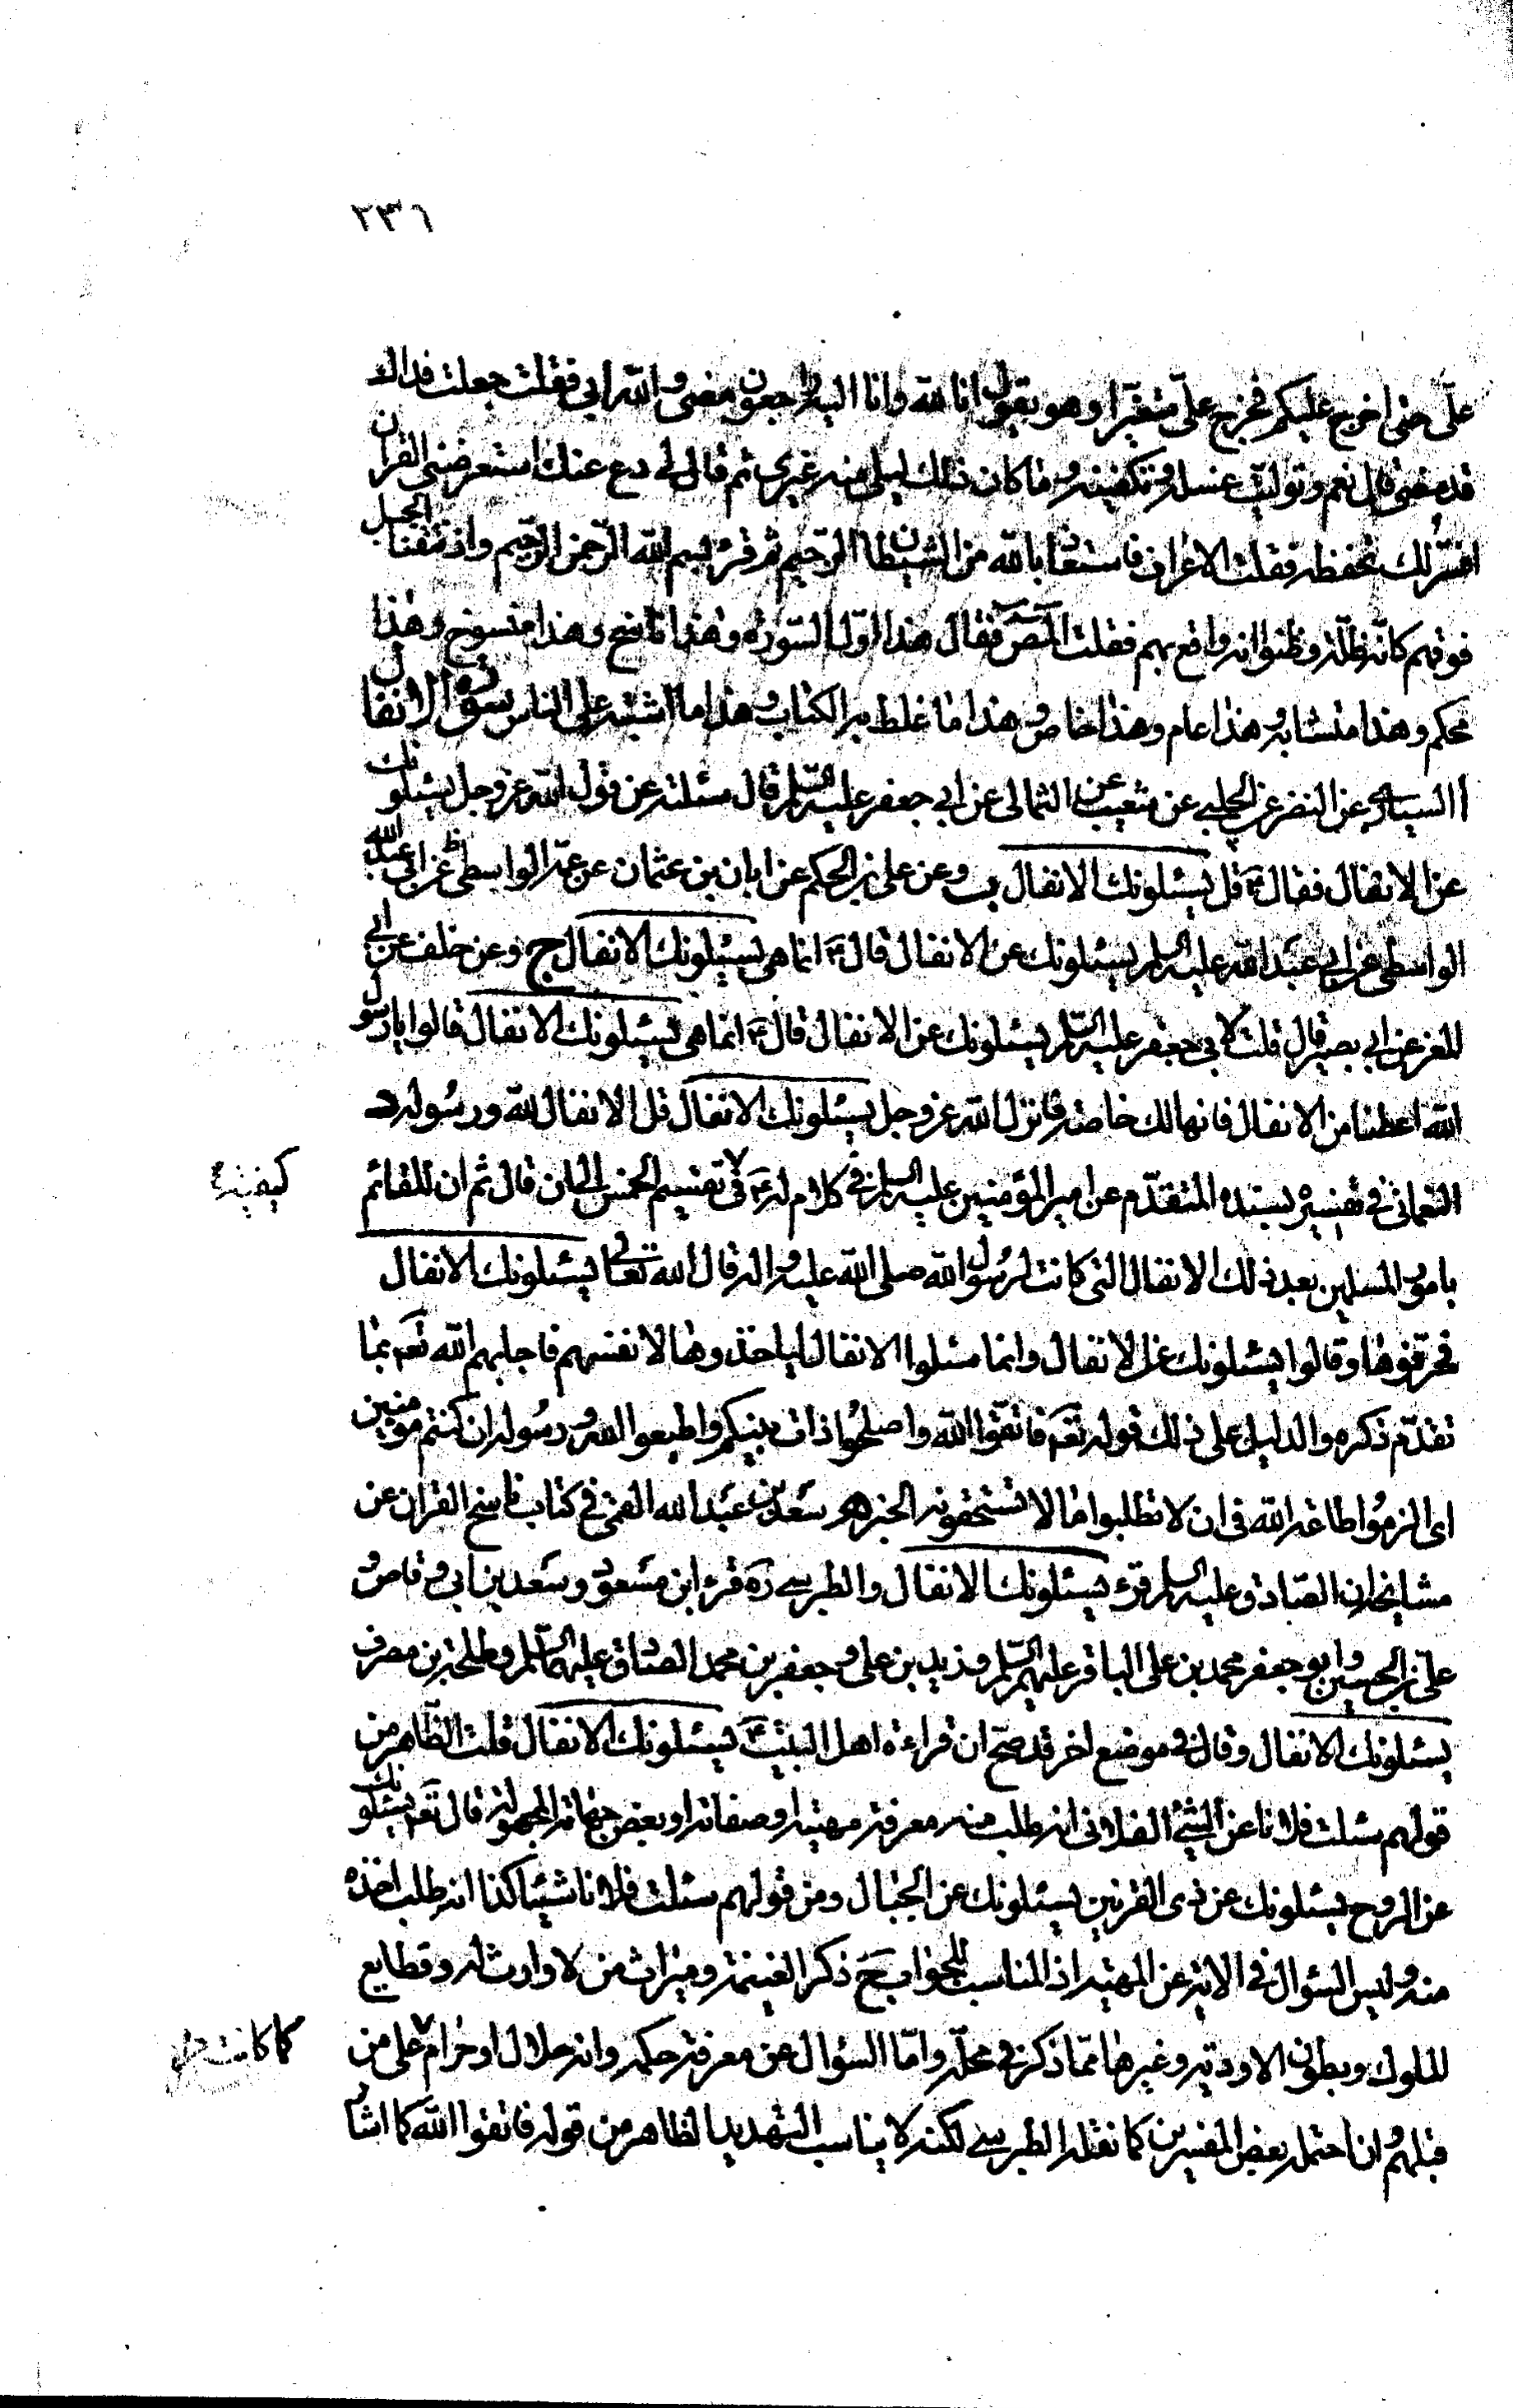 ٢٣٦
علىّ حتى اخرج عليكم فخرج علىّ متغيّرا وهو يقول انا لله وانا اليه راجعون مضى والله ابي فقلت جعلت فداك
قد مضى قال نعم وتوليت غسله وتكفينه وما كان ذلك ليلى منه غيرى ثم قال لي دع عنك استعرضنى القران
افسّر لك تحفظه فقلت الاعراف فاستعاذ بالله من الشيطان الرّجيم ثم قرء بسم الله الرّحمن الرّحيم واذ نتقنا الجبل
فوقهم كانّه ظلّة وظنوا انه واقع بهم فقلت المص فقال هذا اوّل السّورة وهذا ناسخ وهذا منسوخ وهذا
محكم وهذا متشابه وهذا عام وهذا خاص وهذا ما غلط به الكتاب وهذا ما اشتبه على الناس سورة الانفال
ا السياري عن النضر عن الحلبي عن شعيب عن الثمالى عن ابي جعفر عليه السّلم قال سئلته عن قول الله عز وجل يسئلونك
عن الانفال فقال ع قل يسئلونك الانفال ب وعن على بن الحكم عن ابان بن عثمان عن محمد الواسطى عن ابي عبد الله
الواسطى عن ابي عبد الله عليه السلم يسئلونك عن الانفال قال ع انما هى يسئلونك الانفال ج وعن خلف عن ابي
المغرا عن ابي بصير قال قلت لابي جعفر عليه السّلم يسئلونك عن الانفال قال ع انما هى يسئلونك الانفال قالوا يا رسول
الله اعطنا من الانفال فانها لك خاصة فانزل الله عز وجل يسئلونك الانفال قل الانفال لله ورسوله د
النعمانى في تفسيره بسنده المتقدّم عن امير المؤمنين عليه السلم في كلام له ع في تقسيم الخمس الى ان قال ثم ان للقائم
كيفية
بامور المسلمين بعد ذلك الانفال التى كانت لرسول الله صلى الله عليه واله قال الله تعالى يسئلونك الانفال
فحرفوها وقالوا يسئلونك عن الانفال وانما سئلوا الانفال لياخذوها لانفسهم فاجابهم الله تعه بما
تقدّم ذكره والدليل على ذلك قوله تعه فاتقوا الله واصلحوا ذات بينكم واطيعوا الله ورسوله ان كنتم مؤمنين
اى الزموا طاعة الله فى ان لا تطلبوا ما لا تستحقونه الخبر ه سعد بن عبد الله القمى في كتاب ناسخ القران عن
مشايخه ان الصّادق عليه السلم قرء يسئلونك الانفال و الطبرسي ره قرء ابن مسعود وسعد بن ابي وقاص و
علىّ بن الحسين وابو جعفر محمد بن على الباقر عليهم السّلم وزيد بن على وجعفر بن محمد الصادق عليهما السّلم وطلحة بن مصرف
يسئلونك الانفال وقال في موضع اخر قد صح ان قراءة اهل البيت ع يسئلونك الانفال قلت الظّاهر من
قولهم سئلت فلانا عن الشئ الفلانى انه طلب منه معرفة مهيته او صفاته او بعض جهاته المجهولة قال تعه يسئلونك
عن الروح يسئلونك عن ذى القرنين يسئلونك عن الجبال ومن قولهم سئلت فلانا شيئا كذا انه طلب اخذه
منه وليس السؤال في الاية عن المهية اذ المناسب للجواب ح ذكر الغنيمة وميراث من لا وارث له وقطايع
الملوك وبطون الاودية وغيرها مما ذكر في محلّه وامّا السؤال عن معرفة حكمه وانه حلال او حرام على من
كما كانت
قبلهم وان احتمله بعض المفسرين كما نقله الطبرسي لكنه لا يناسب التهديد الظاهر من قوله فاتقوا الله كما اشا